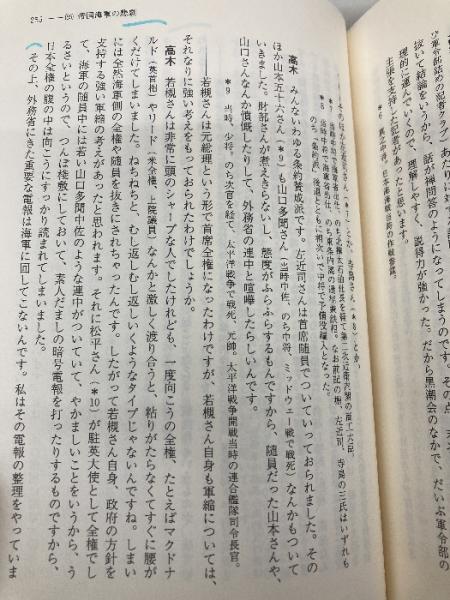 285 ――(5) 帝国海軍の悲劇
び軍令部詰めの記者クラブ)あたりに対する説
抜いて結論をいうから、話が禅問答のようになってしまうのです。その点
理的に運んでいくので、理解しやすく、説得力が強かった。だから黒潮会のなかで、だいぶ軍令部の
主張を支持した記者があったと思います。
高木 みんないわゆる条約賛成派です。左近司さんは首席随員でついていっておられました。その
ほか山本五十六さん(*9)も山口多聞さん(当時中佐、のち中将、ミッドウェー戦で戦死)なんかもついて
いきました。財部さんが煮えきらないし、態度がふらふらするもんですから、随員だった山本さんや、
山口さんなんか憤慨したりして、外務省の連中と喧嘩したらしいんです。
*9 当時、少将、のち次官を経て、太平洋戦争で戦死、元帥。太平洋戦争開戦当時の連合艦隊司令長官。
――若槻さんは元総理という形で首席全権になったわけですが、若槻さん自身も軍縮については、
それなりに強い考えをもっておられたわけでしょうか。
高木 若槻さんは非常に頭のシャープな人でしたけれども、一度向こうの全権、たとえばマクドナ
ルド(英首相)やリード(米全権、上院議員)なんかと激しく渡り合うと、粘りがたらなくてすぐに腰が
くだけてしまいます。ねちねちと、むし返しむし返ししていくようなタイプじゃないんですね。しまい
には全然海軍側の全権や随員を抜きにされちゃったんです。したがって若槻さん自身、政府の方針を
支持する強い軍縮の考えがあったと思われます。それに松平さん(*10)が駐英大使として全権でし
て、海軍の随員中には若い山口多聞中佐のような連中がついていて、やかましいことをいうから、う
るさいというので、つんぼ桟敷にしておいて、素人だましの暗号電報を打ったりするものですから、
日本全権の腹の中は向こうにすっかり読まれてしまいました。
その上、外務省にきた重要な電報は海軍に回してこないんです。私はその電報の整理をやっていま